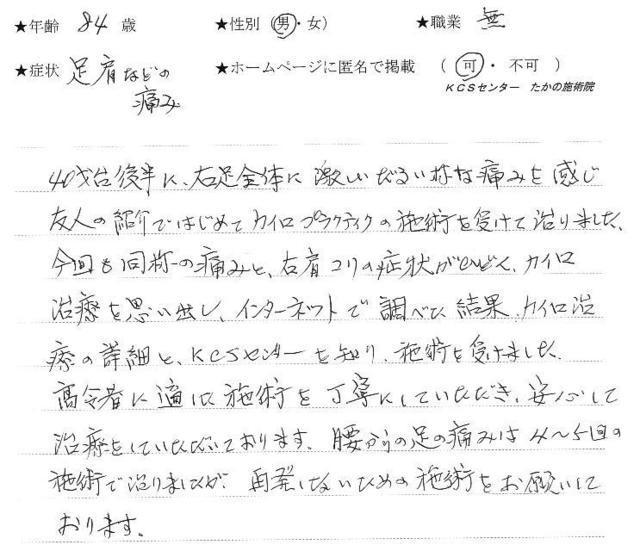 ★年齢 84 歳 ★性別 (男・女) ★職業 無
★症状 足肩などの痛み ★ホームページに匿名で掲載 (可・不可)
KCSセンター たかの施術院
40才台後半に、右足全体に激しいだるい様な痛みを感じ
友人の紹介ではじめてカイロプラクティクの施術を受けて治りました、
今回も同称の痛みと、右肩コリの症状がひどく、カイロ
治療を思い出し、インターネットで調べた結果、カイロ治
療の詳細と、KCSセンターを知り、施術を受けました。
高令者に適した施術を丁寧にしていただき、安心して
治療をしていただいております。腰からの足の痛みは4〜5回の
施術で治りましたが、再発しないための施術をお願いして
おります。